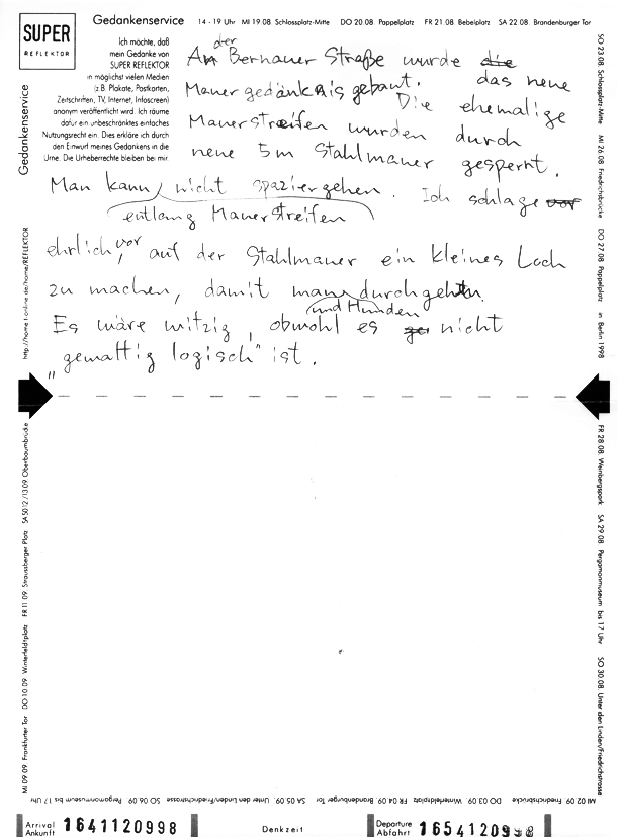 SUPER
REFLEKTOR
Gedankenservice
14 - 19 Uhr MI 19 08 Schlossplatz-Mitte DO 20 08 Pappelplatz FR 21 08 Bebelplatz SA 22 08 Brandenburger Tor
Ich möchte, daß
mein Gedanke von
SUPER REFLEKTOR
in möglichst vielen Medien
(z.B. Plakate, Postkarten,
Zeitschriften, TV, Internet, Infoscreen)
anonym veröffentlicht wird. Ich räume
dafür ein unbeschränktes einfaches
Nutzungsrecht ein. Dies erkläre ich durch
den Einwurf meines Gedankens in die
Urne. Die Urheberrechte bleiben bei mir.
An der Bernauer Straße wurde die
das neue
Mauergedänknis gebaut. Die ehemalige
Mauerstreifen wurden durch
neue 5m Stahlmauer gesperrt.
Man kann nicht spaziergehen. Ich schlage vor
entlang Mauerstreifen
ehrlich, vor auf der Stahlmauer ein kleines Loch
zu machen, damit man durchgehen.
und Hunden
Es wäre witzig, obwohl es nicht
„gewaltig logisch" ist.
Gedankenservice
http://home.t-online.de/home/REFLEKTOR
SO 23 08 Schlossplatz-Mitte MI 26 08 Friedrichsbrücke DO 27 08 Pappelplatz in Berlin 1998
MI 09 09 Frankfurter Tor DO 10 09 Winterfeldtplatz FR 11 09 Straussberger Platz SA SO 12./13 09 Oberbaumbrücke
FR 28 08 Weinbergspark SA 29 08 Pergamonmuseum bis 17 Uhr SO 30 08 Unter den Linden/Friedrichstrasse
MI 02 09 Friedrichsbrücke DO 03 09 Winterfeldtplatz FR 04 09 Brandenburger Tor SA 05 09 Unter den Linden/Friedrichstrasse SO 06 09 Pergamonmuseum bis 17 Uhr
Arrival
Ankunft
1641120998
Denkzeit
Departure
Abfahrt
1654120998